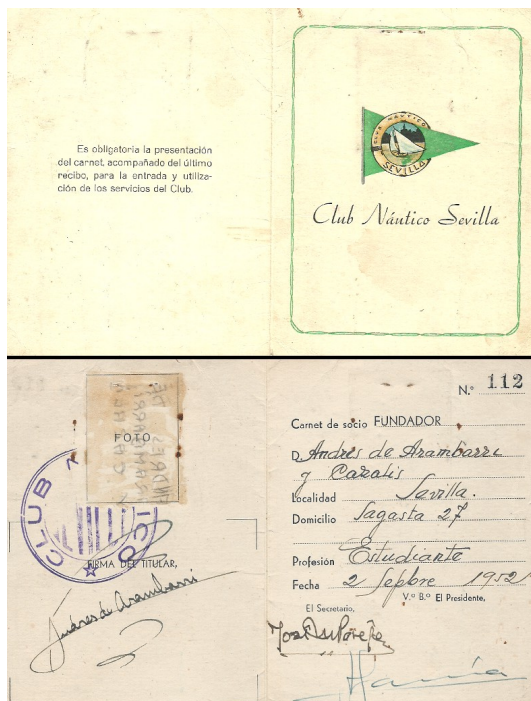 Es obligatoria la presentación
del carnet, acompañado del último
recibo, para la entrada y utiliza-
ción de los servicios del Club.
CLUB NÁUTICO
SEVILLA
Club Náutico Sevilla
FOTO
CLUB
ICO
FIRMA DEL TITULAR,
de Arambarri
N.º 112
Carnet de socio FUNDADOR
D. Andrés de Arambarri
y
Localidad Sevilla.
Domicilio Sagasta 27
Profesión Estudiante
Fecha 2 Sepbre 1952
V.º B.º El Presidente,
El Secretario,
José